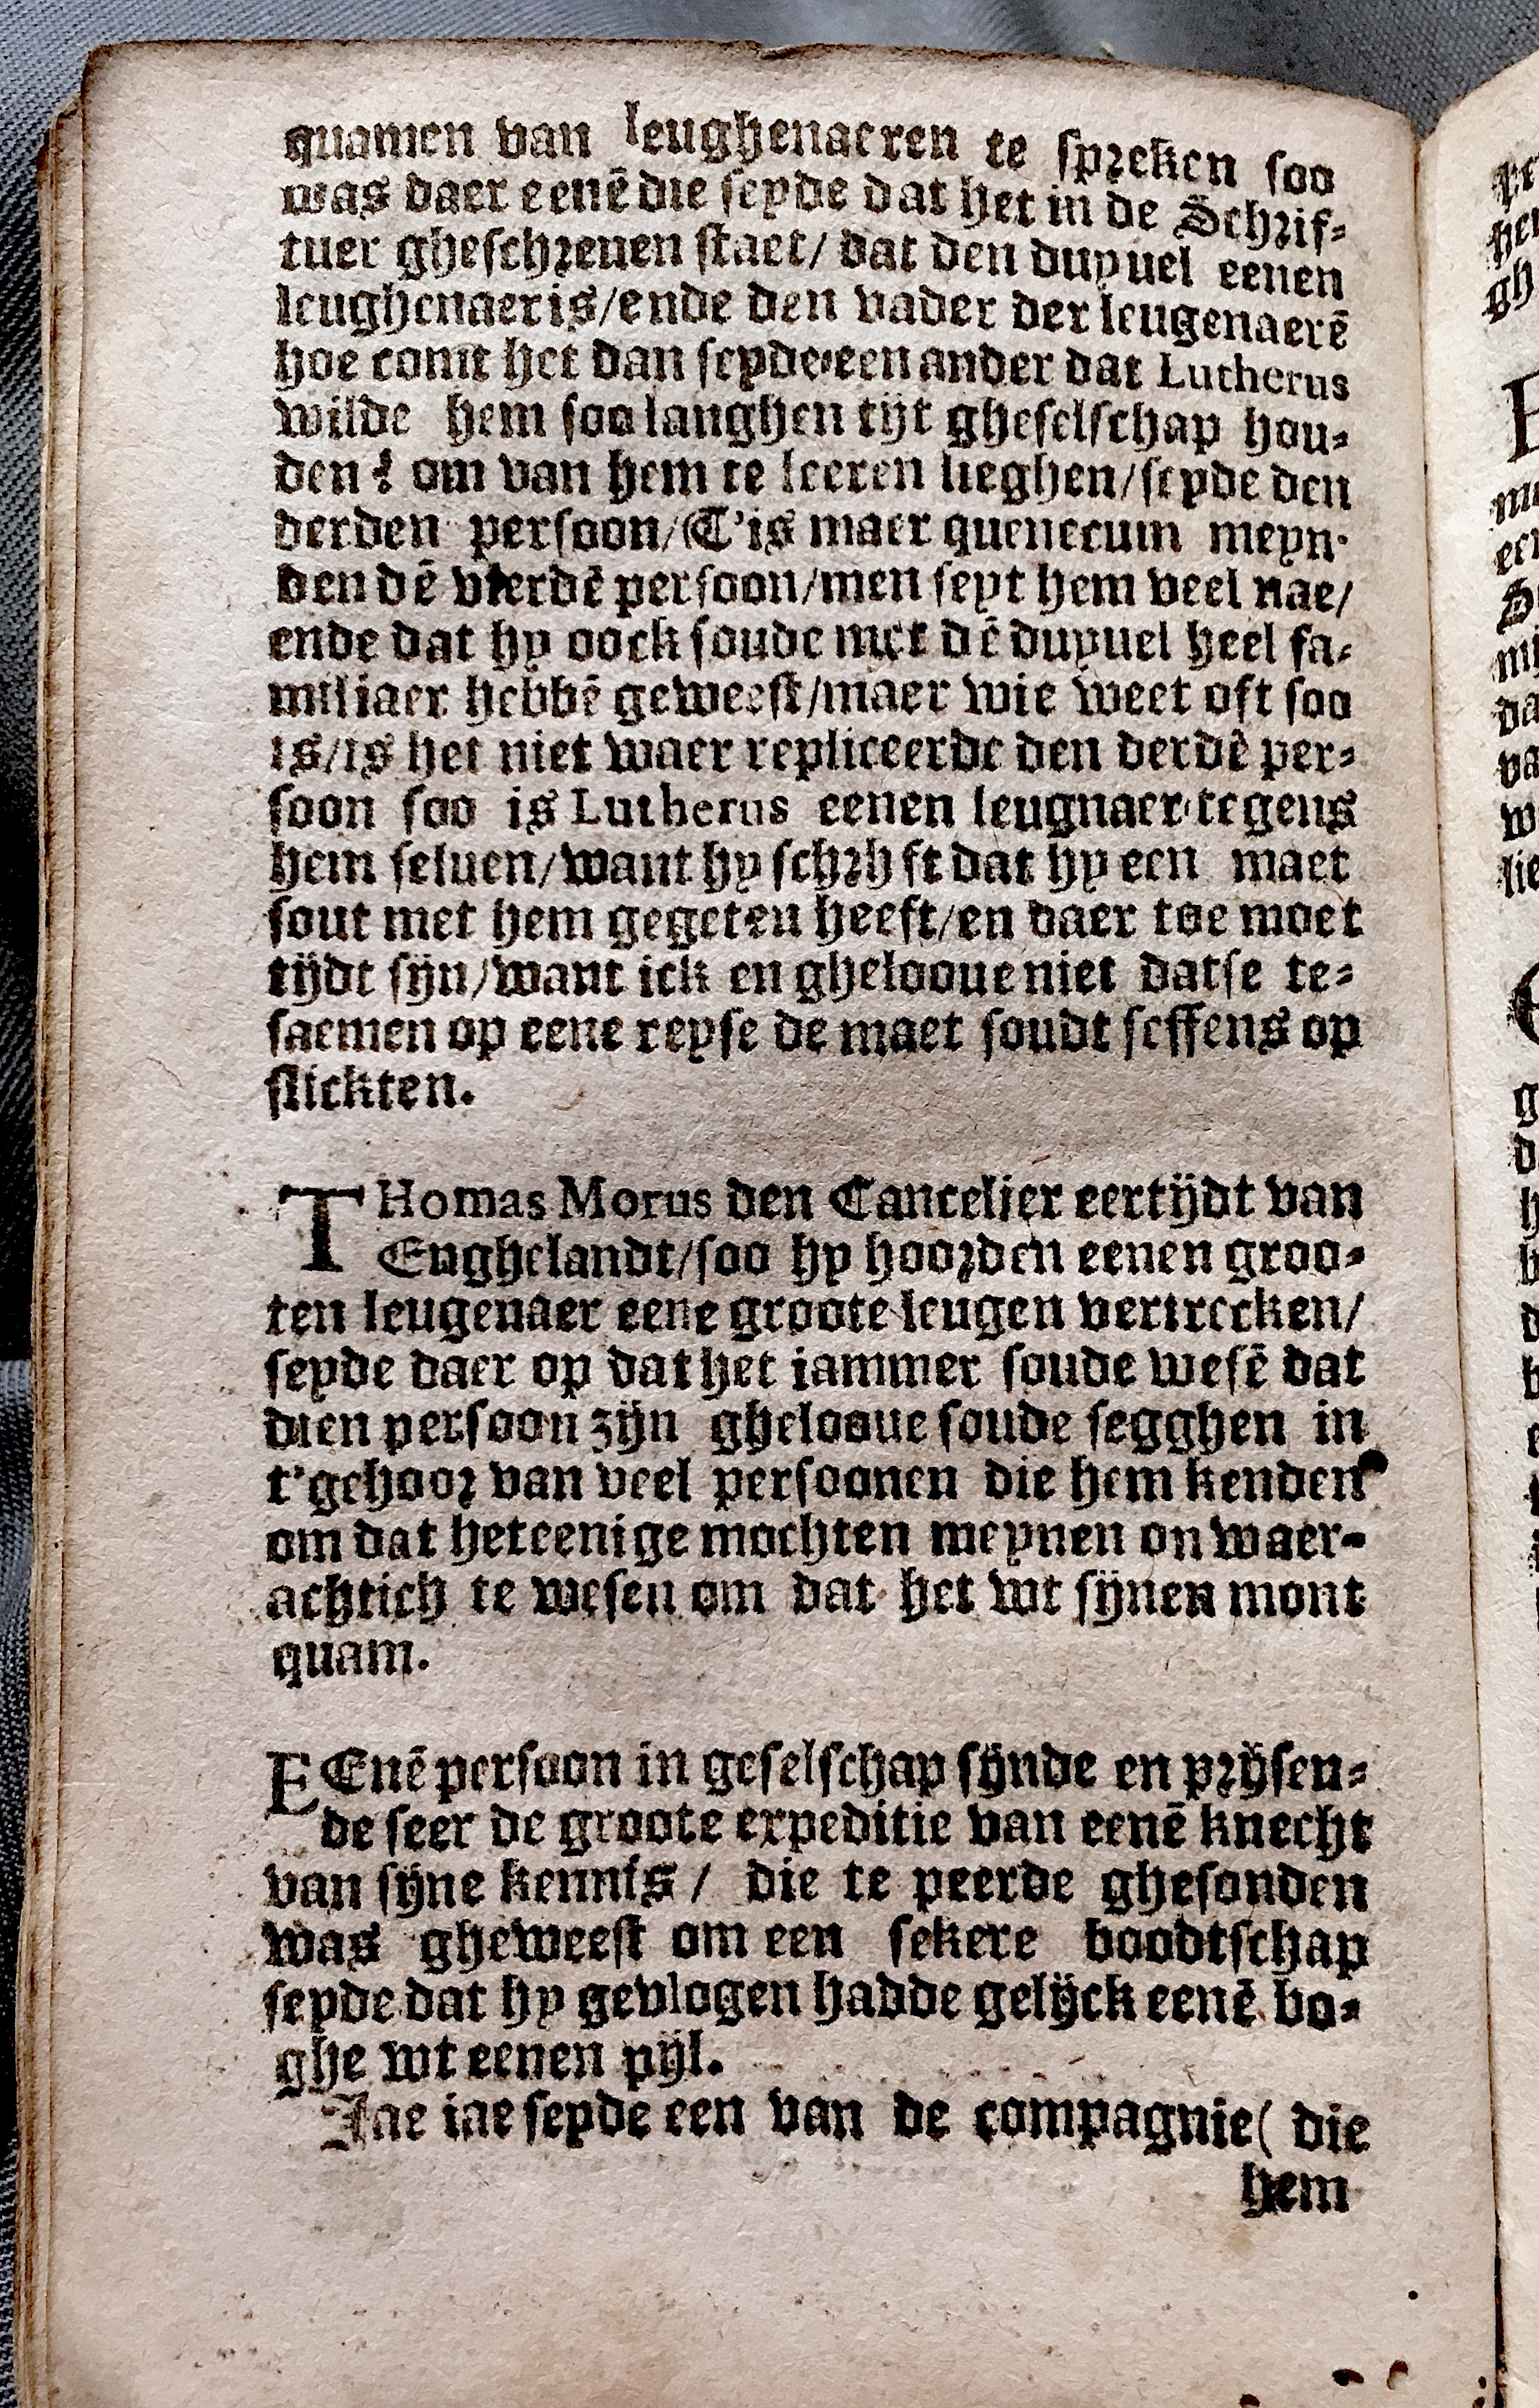 quamen van leughenaeren te spreken soo
was daer eenē die seyde dat het in de Schrif-
tuer gheschreuen staet/ dat den duyuel eenen
leughenaer is/ende den vader der leugenaerē
hoe comt het dan seyde een ander dat Lutherus
wilde hem soo langhen tijt gheselschap hou-
den? om van hem te leeren lieghen/seyde den
derden persoon/(T'is maer quenecum meyn-
den dē vierdē persoon/men seyt hem veel nae/
ende dat hy oock soude met dē duyuel heel fa-
miliaer hebbē geweest/maer wie weet oft soo
is/is het niet waer repliceerde den derdē per-
soon soo is Lutherus eenen leugnaer tegens
hem seluen/want hy schrijft dat hy een maet
sout met hem gegeten heeft/en daer toe moet
tijdt sijn/want ick en ghelooue niet datse te-
saemen op eene reyse de maet soudt seffens op
slickten.
THomas Morus den Cancelier eertijdt van
Enghelandt/soo hy hoorden eenen groo-
ten leugenaer eene groote leugen vertrecken/
seyde daer op dat het iammer soude wesē dat
dien persoon zijn ghelooue soude segghen in
t'gehoor van veel persoonen die hem kenden
om dat het eenige mochten meynen onwaer-
achtich te wesen om dat het wt sijnen mont
quam.
EEnē persoon in geselschap sijnde en prijsen-
de seer de groote expeditie van eenē knecht
van sijne kennis/ die te peerde ghesonden
was gheweest om een sekere boodtschap
seyde dat hy gevlogen hadde gelijck eenē bo-
ghe wt eenen pijl.
Iae iae seyde een van de compagnie( die
hem